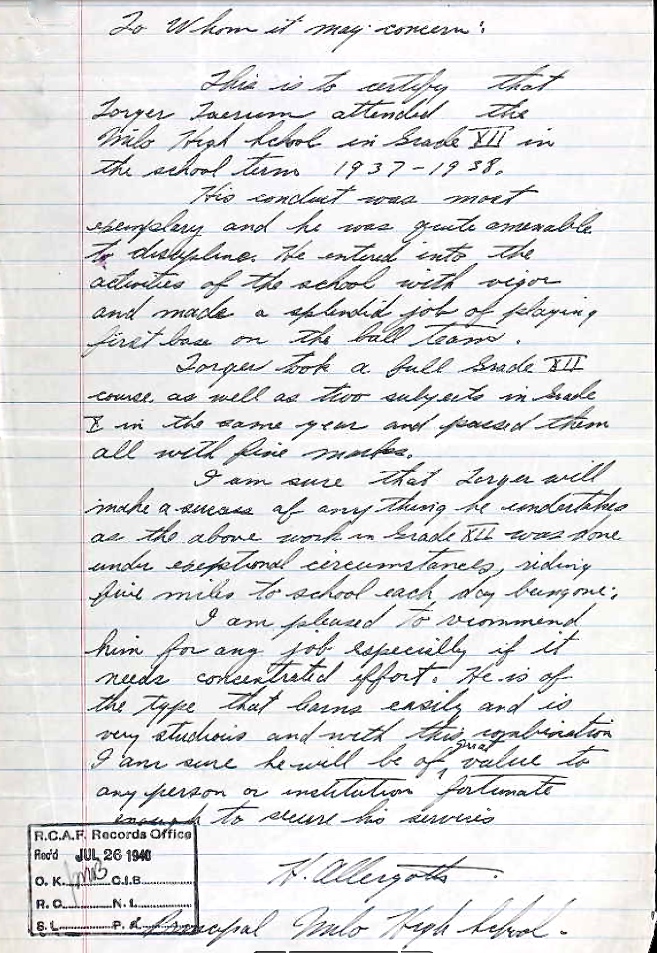 To Whom it may concern:
This is to certify that
Torger Taerum attended the
Milo High School in Grade XII in
the school term 1937-1938.
His conduct was most
exemplary and he was quite amenable
to discipline. He entered into the
activities of the school with vigor
and made a splendid job of playing
first base on the ball team.
Torger took a full Grade XII
course as well as two subjects in Grade
X in the same year and passed them
all with fine marks.
I am sure that Torger will
make a success of anything he undertakes
as the above work in Grade XII was done
under exceptional circumstances, riding
five miles to school each day being one.
I am pleased to recommend
him for any job especially if it
needs concentrated effort. He is of
the type that learns easily and is
very studious and with this combination
I am sure he will be of great value to
any person or institution fortunate
enough to secure his services
R.C.A.F. Records Office
Rec'd JUL 26 1940
O. K. C.I.B.
R. C. N. I.
S. L. P.
Principal Milo High School.